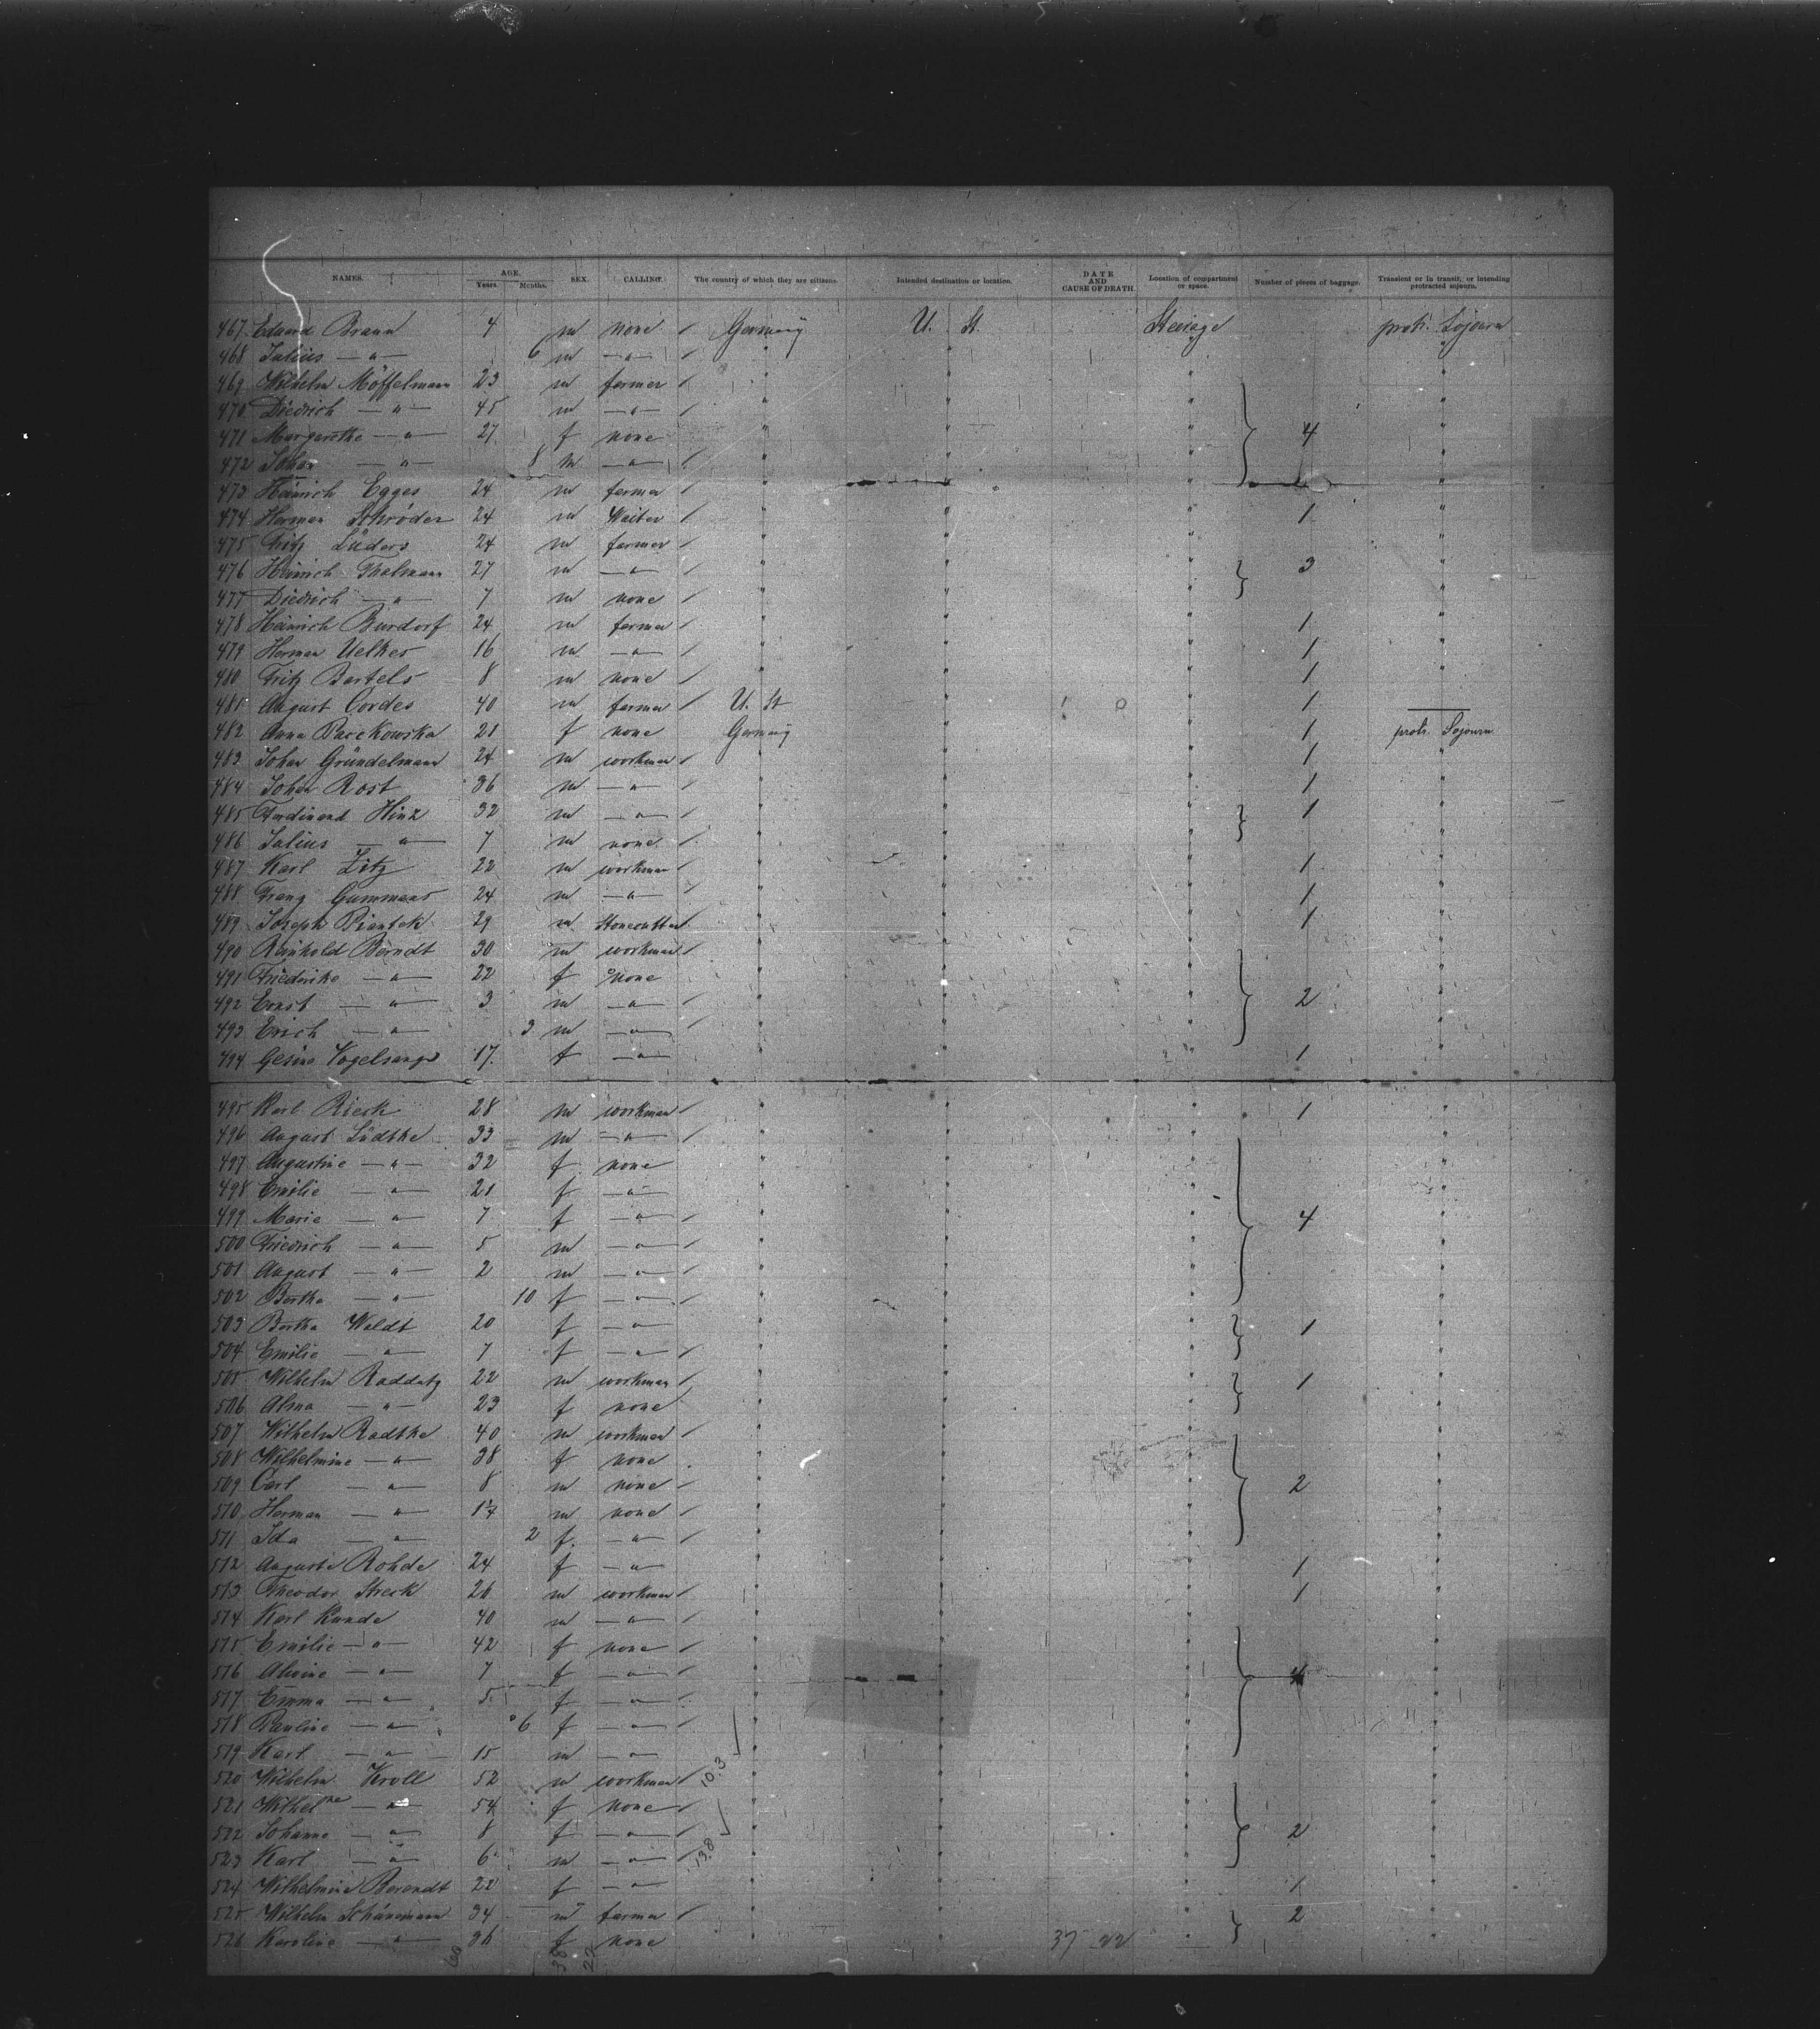 NAMES. AGE. SEX. CALLING. The country of which they are citizens. Intended destination or location. DATE AND CAUSE OF DEATH. Location of compartment or space. Number of pieces of baggage. Transient or in transit, or intending protracted sojourn.
Years. Months.
467 Eduard Braun 4 m none / Germany U. St. Steerage protr. Sojourn
468 Julius —"— 6 m —"— / " " " "
469 Wilhelm Möffelmann 23 m farmer / " " " "
470 Diedrich —"— 45 m —"— / " " " "
471 Margarethe —"— 27 f none " " " 4 "
472 Johan —"— 8 m —"— / " " " "
473 Heinrich Egges 24 m farmer / " " " 1 "
474 Herman Schröder 24 m Waiter / " " " 1 "
475 Fritz Lüders 24 m farmer / " " " "
476 Heinrich Thalmann 27 m —"— / " " " 3 "
477 Diedrich —"— 7 m none / " " " "
478 Heinrich Burdorf 24 m farmer / " " " 1 "
479 Herman Uelkes 16 m —"— / " " " 1 "
480 Fritz Bartels 8 m none / " " " 1 "
481 August Cordes 40 m farmer / U. St " " 1 —
482 Anna 21 f none Germany " " 1 protr. Sojourn
483 Johan Gründelmann 24 m workman / " " " 1 "
484 Johan Rost 36 m —"— / " " " 1 "
485 Ferdinand Hinz 32 m —"— / " " " 1 "
486 Julius —"— 7 m none / " " " "
487 Karl Zitz 22 m workman / " " " 1 "
488 Franz Gummans 24 m —"— / " " " 1 "
489 Joseph Piontek 29 m Stonecutter " " " 1 "
490 Reinhold Berndt 30 m workman / " " " "
491 Friedrike —"— 22 f none " " " "
492 Ernst —"— 3 m —"— / " " " 2 "
493 Erich —"— 3 m —"— / " " " "
494 Gesine Vogelsang 17 f —"— " " " 1 "
495 Karl Rieck 28 m workman / " " " 1 "
496 August Lüdtke 33 m —"— / " " " "
497 Augustine —"— 32 f none " " " "
498 Emilie —"— 21 f —"— " " " "
499 Marie —"— 7 f —"— / " " " 4 "
500 Friedrich —"— 5 m —"— / " " " "
501 August —"— 2 m —"— / " " " "
502 Bertha —"— 10 f —"— / " " " "
503 Bertha Waldt 20 f —"— " " " 1 "
504 Emilie —"— 7 f —"— / " " " "
505 Wilhelm Raddatz 22 m workman / " " " 1 "
506 Alma —"— 23 f none " " " "
507 Wilhelm Radtke 40 m workman / " " " "
508 Wilhelmine —"— 38 f none " " " "
509 Carl —"— 8 m none / " " " 2 "
510 Herman —"— m none / " " " "
511 Ida —"— 2 f —"— / " " " "
512 Auguste Rohde 24 f —"— " " " 1 "
513 Theodor Streck 26 m workman / " " " 1 "
514 Karl Kunde 40 m —"— / " " " "
515 Emilie —"— 42 f none / " " " "
516 Alwine —"— 7 f —"— / " " " 4 "
517 Emma —"— 5 f —"— / " " " "
518 Pauline —"— 6 f —"— / " " " "
519 Karl —"— 15 m —"— " " " "
520 Wilhelm Kroll 52 m workman / 10.3 " " " "
521 Wilhel ne —"— 54 f none / " " " "
522 Johanne —"— 8 f —"— / " " " 2 "
523 Karl —"— 6 m —"— / 13.8 " " " "
524 Wilhelmine Berendt 22 f —"— " " " 1 "
525 Wilhelm Schünemann 34 m farmer / " " " 2 "
526 Karoline —"— 36 f none " " 37 22 " "
60 38 22